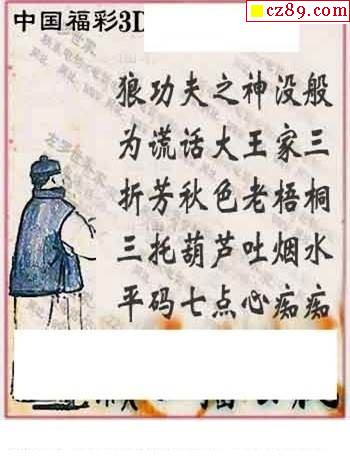 cz89.com
中国福彩3D
狼功夫之神没般
为谎话大王家三
折芳秋色老梧桐
三托葫芦吐烟水
平码七点心痴痴